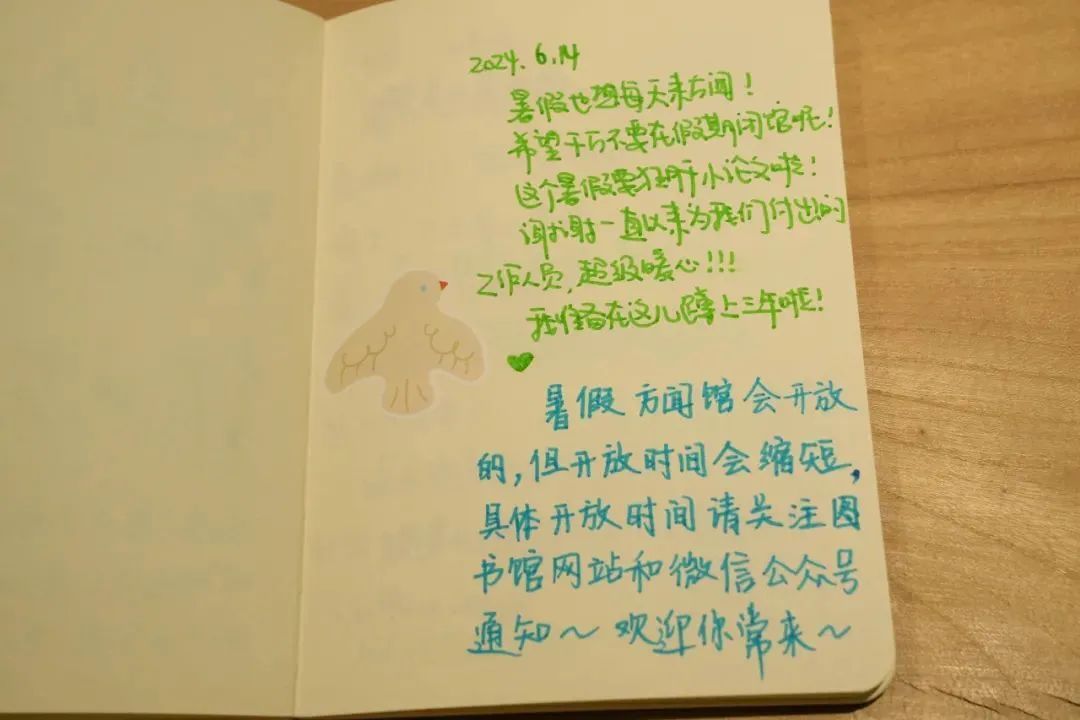 2024.6.14
暑假也想每天来方闻!
希望千万不要在假期闭馆呢!
这个暑假要狂肝小论文啦!
谢谢一直以来为我们付出的
工作人员,超级暖心!!!
我准备在这儿蹲上三年啦!
暑假方闻馆会开放
的,但开放时间会缩短,
具体开放时间请关注图
书馆网站和微信公众号
通知~ 欢迎你常来~